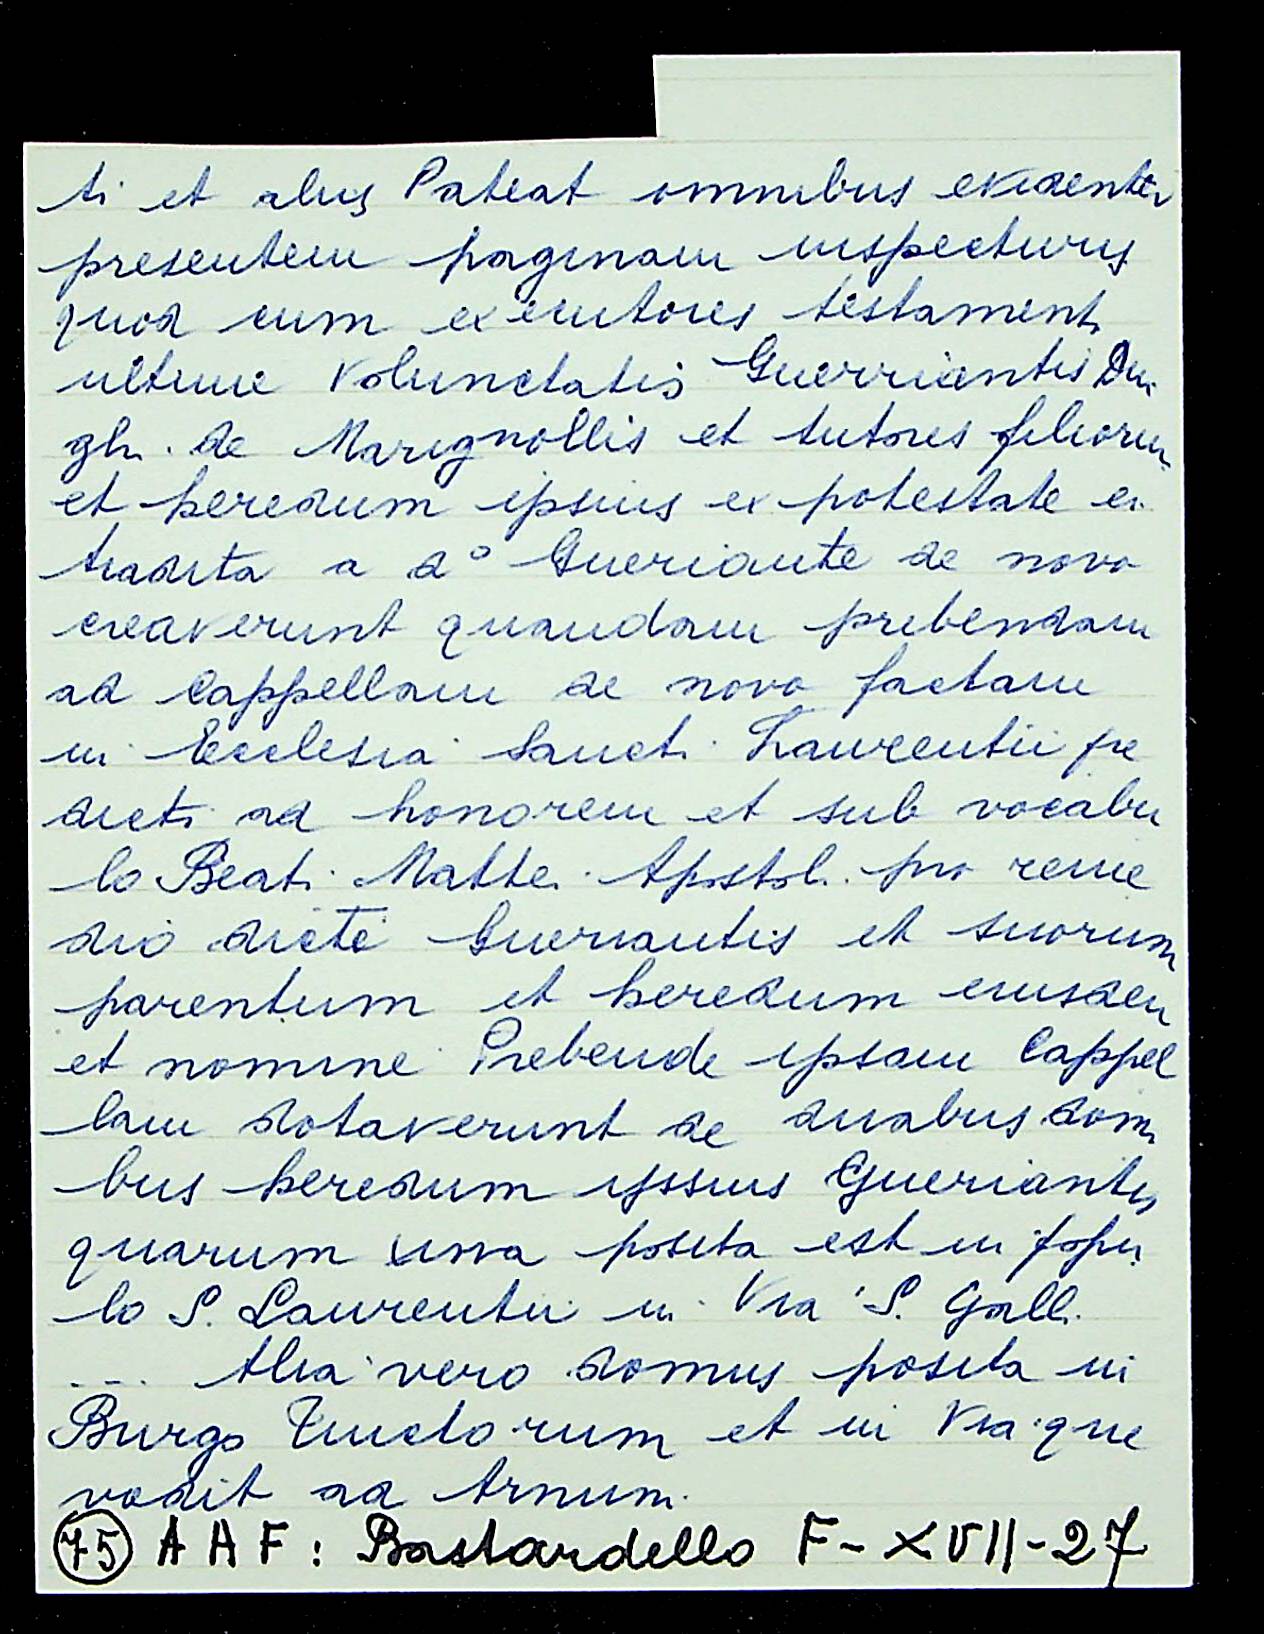 ti et aliis Pateat omnibus evidenter
presentem paginam inspecturis
quod cum executores testamenti
ultime Volunctatis Guerriantis Dui
ghi de Marignollis et tutores filiorum
et heredum ipsius ex potestate ei
tradita a d° Gueriante de novo
creaverunt quandam prebendam
ad Cappellam de novo factam
in Ecclesia Sancti Laurentii pre
dicti ad honorem et sub vocabu
lo Beati Mattei Apostoli pro reme
dio dicti Gueriantis et suorum
parentum et heredum eiusdem
et nomine Prebende ipsam Cappel
lam dotaverunt de duabus domi
bus heredum ipsius Gueriantis
quarum una posita est in popu
lo S. Laurentii in Via S. Galli
... Alia vero domus posita in
Burgo Tinctorum et in Via que
vadit ad Arnum.
75 A A F : Bastardello F - XVII - 27